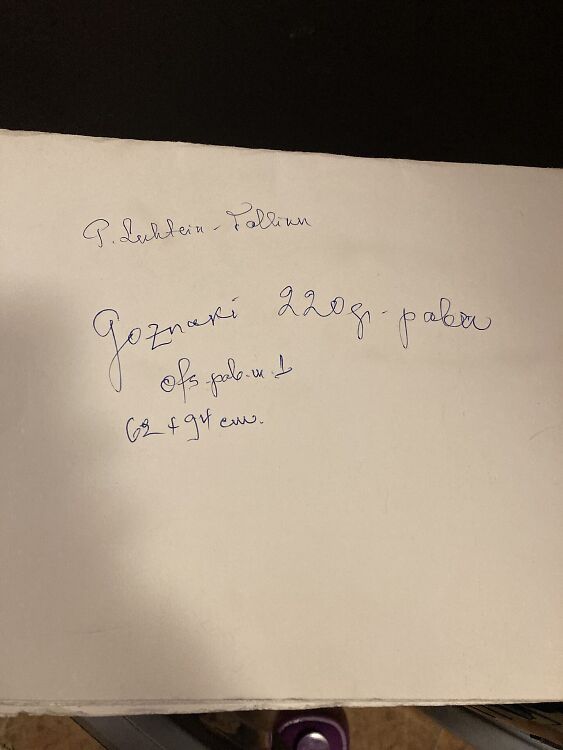 P. Luhtein - Tallinn
Goznaki 220 gr - paber
ofs. pab. n. 1
62 + 94 cm.